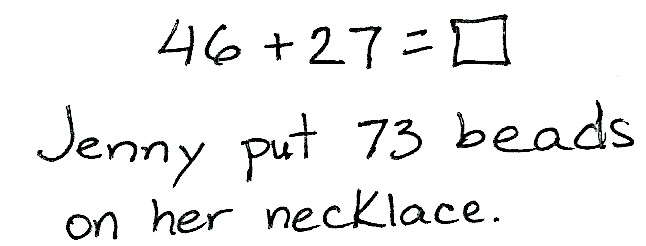 46 + 27 = □
Jenny put 73 beads
on her necklace.